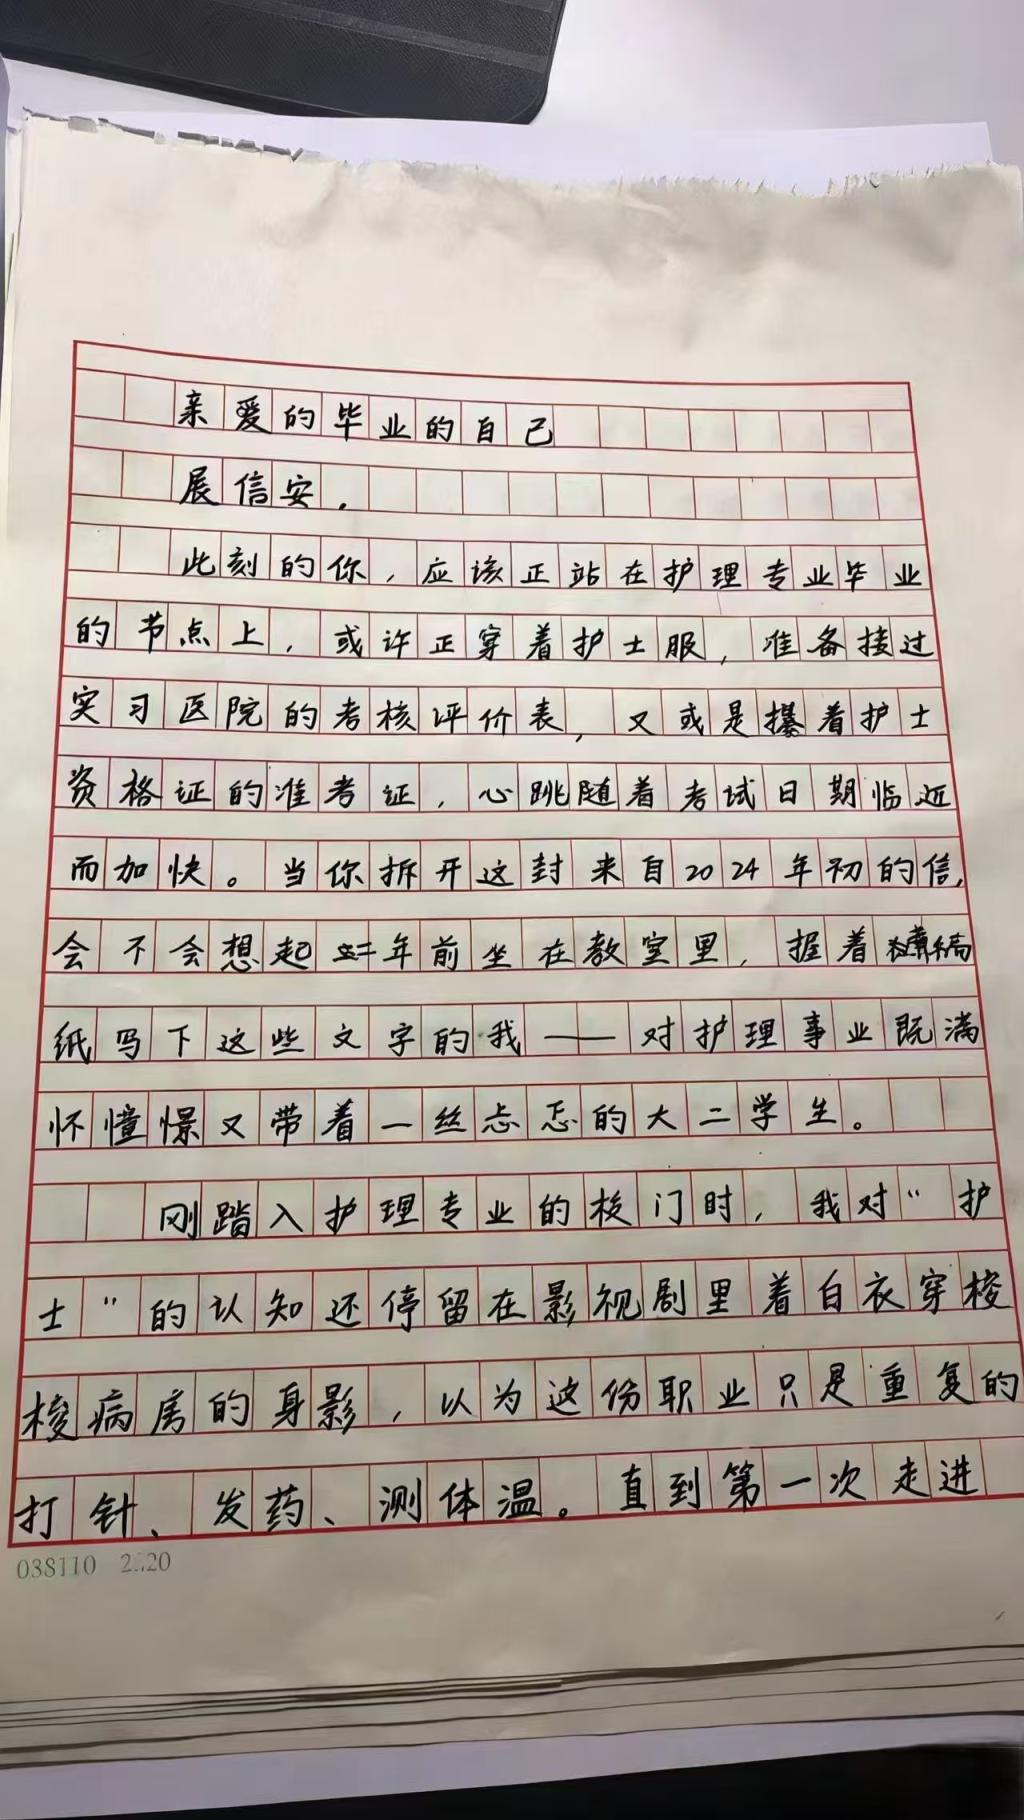 亲爱的毕业的自己
展信安.
此刻的你,应该正站在护理专业毕业
的节点上,或许正穿着护士服,准备接过
实习医院的考核评价表,又或是攥着护士
资格证的准考证,心跳随着考试日期临近
而加快。当你拆开这封来自2024年初的信,
会不会想起 年前坐在教室里,握着 稿
纸写下这些文字的我——对护理事业既满
怀憧憬又带着一丝忐忑的大二学生。
刚踏入护理专业的校门时,我对“护
士”的认知还停留在影视剧里着白衣穿梭
梭病房的身影,以为这份职业只是重复的
打针、发药、测体温。直到第一次走进
038110 2